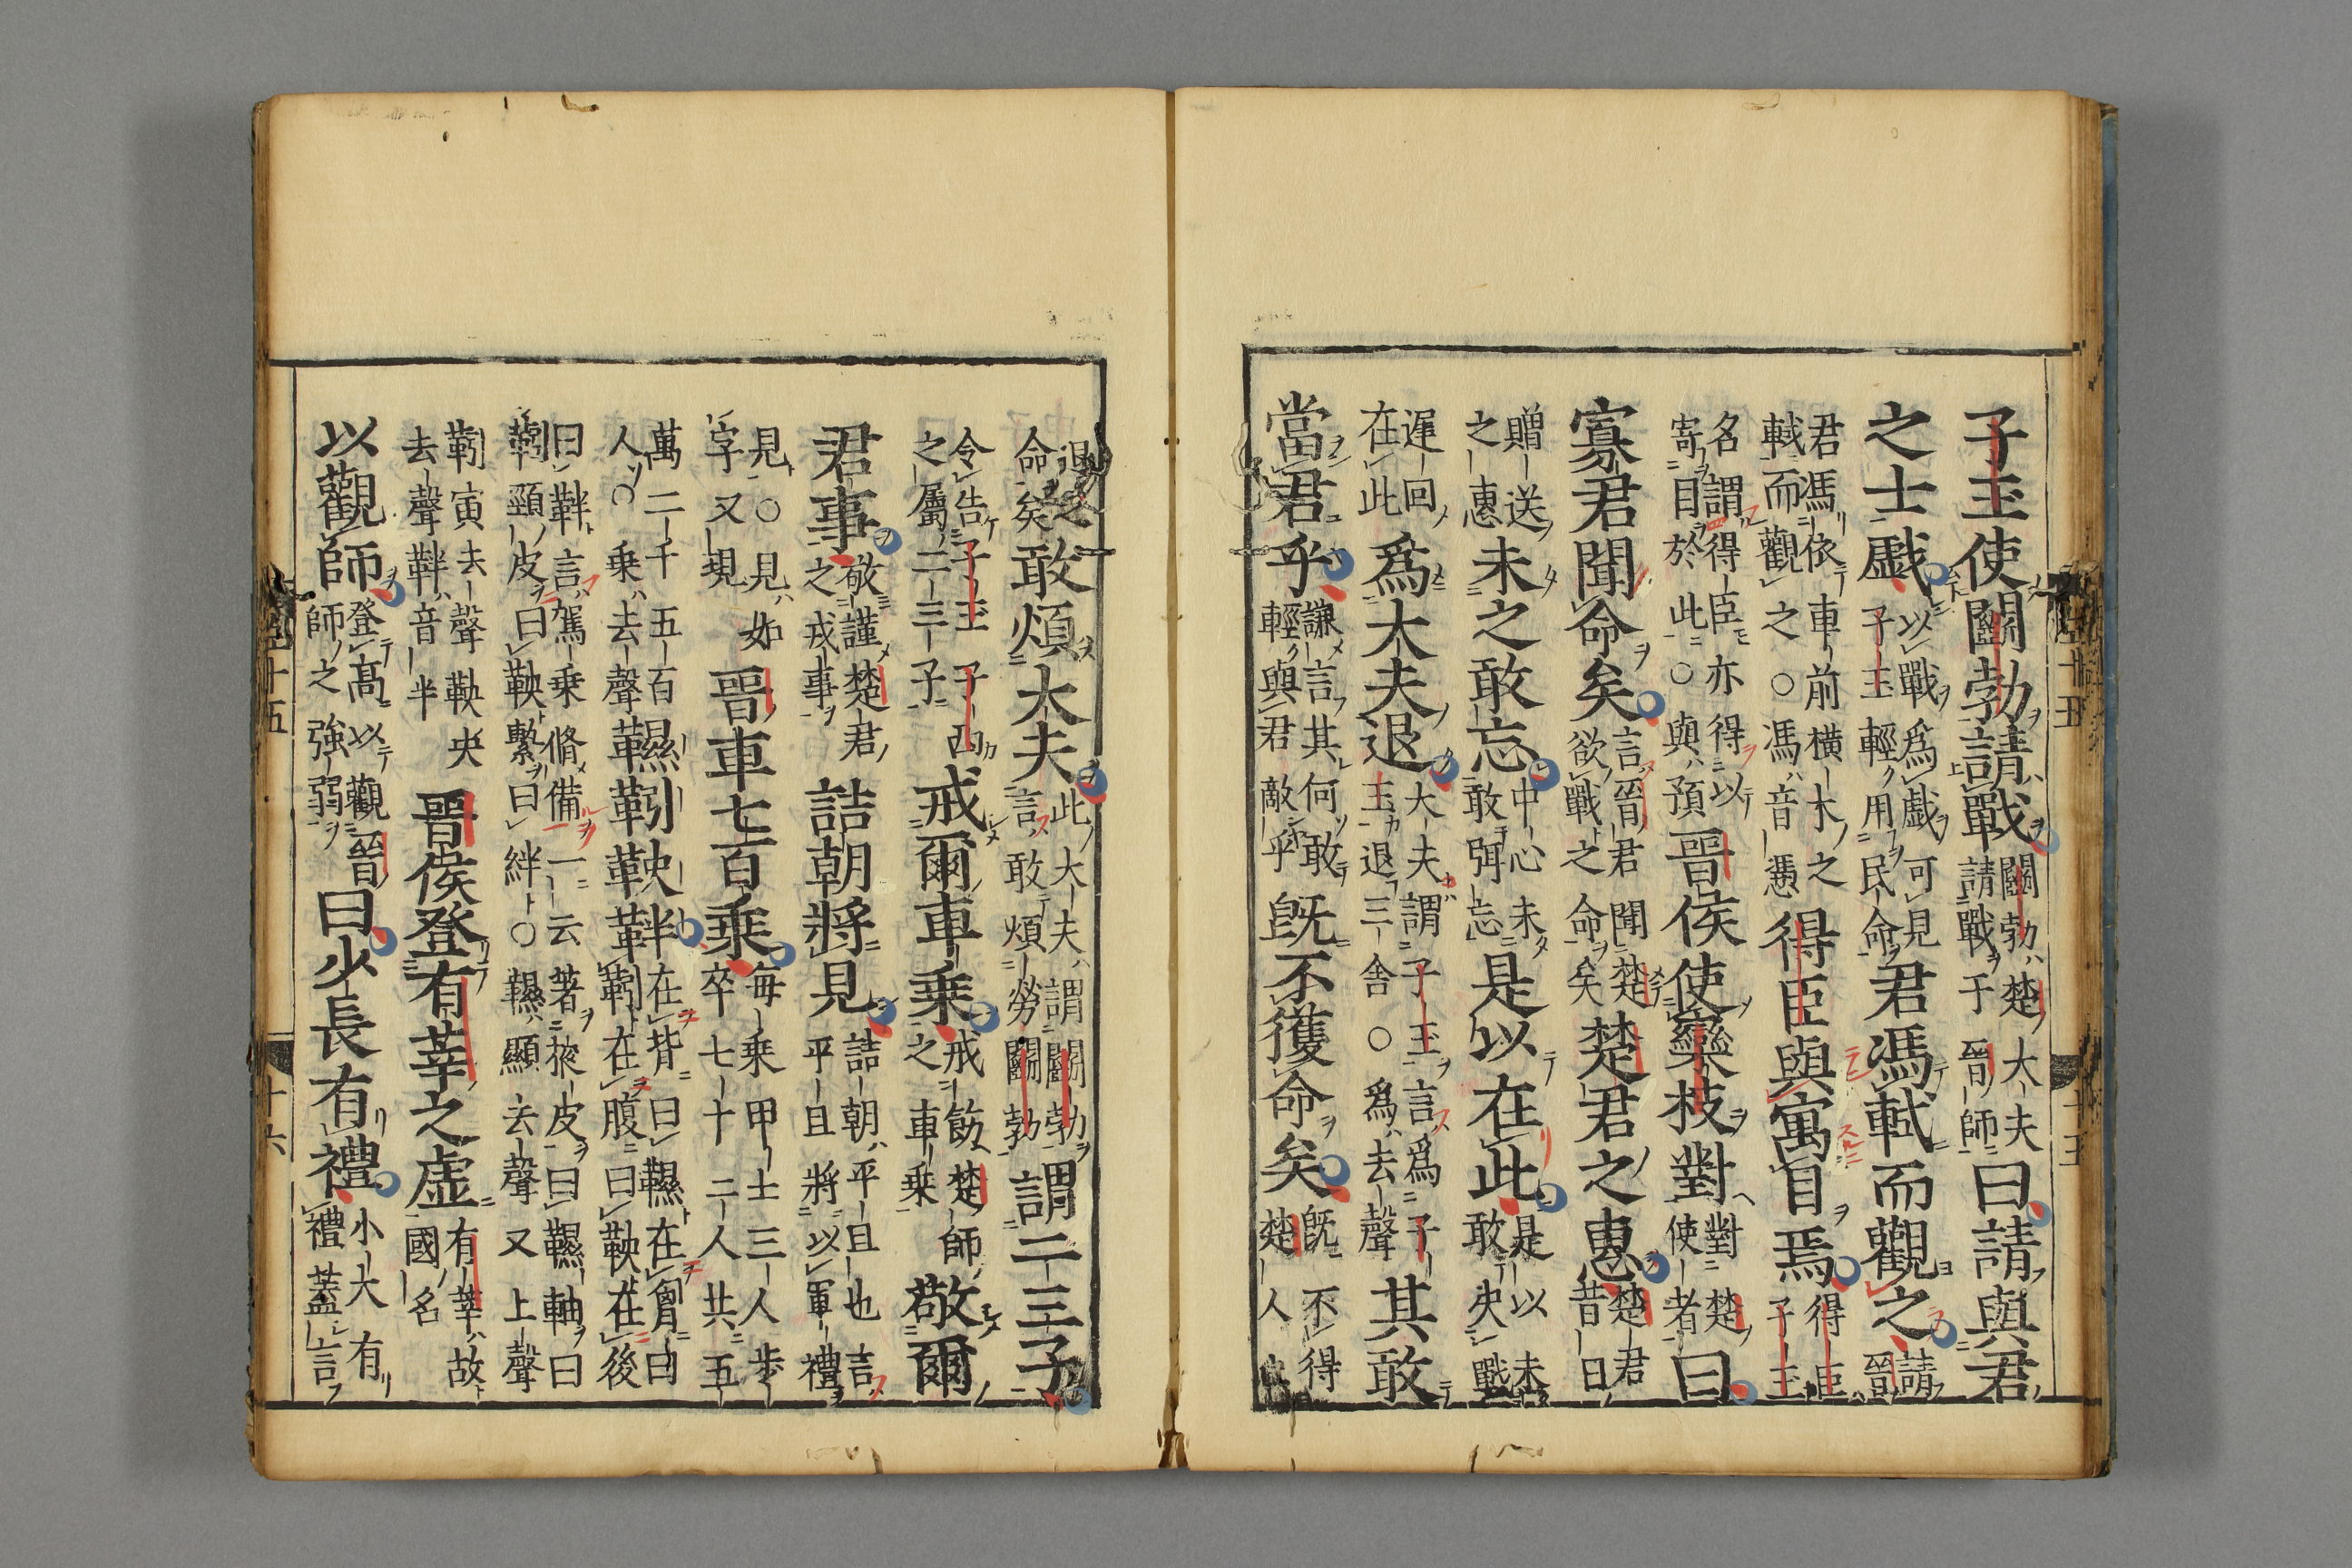 子玉使鬬勃請戰鬬勃楚大夫請戰于晉師曰請與君
之士戱以戰爲戱可見子玉輕用民命君馮軾而觀之請晉
君馮依車前横木之軾而觀之○馮音慿得臣與寓目焉得臣子玉
名謂得臣亦得以寄目於此○與預晉侯使欒枝對對楚使者曰
寡君聞命矣言晉君聞楚欲戰之命矣楚君之惠楚君昔日
贈送之惠未之敢忘中心未敢弭忘是以在此是以未敢决戰
遲回在此爲大夫退大夫謂子玉言爲子玉退三舎○爲去聲其敢
當君乎謙言其何敢輕與君敵乎既不獲命矣既不得楚人
退之命矣敢煩大夫此大夫謂鬬勃言敢煩勞鬬勃謂二三子
令告子玉子西之屬二三子戒爾車乗戒飭楚師之車乗敬爾
君事敬謹楚君之戎事詰朝將見詰朝平旦也言平旦將以軍禮
見○見如字又現晉車七百乗每乗甲士三人歩卒七十二人共五
萬二千五百人○乗去聲韅靷鞅靽在背曰韅在胷曰靷在腹曰鞅在後
曰靽言駕乗脩備一云著掖皮曰韅軸曰靷頸皮曰鞅繫曰絆○韅顯去聲又上聲
靷寅去聲鞅央去聲靽音半晉侯登有莘之虚有莘故國名
以觀師登高以觀晉師之強弱曰少長有禮小大有禮蓋言
十五
十六